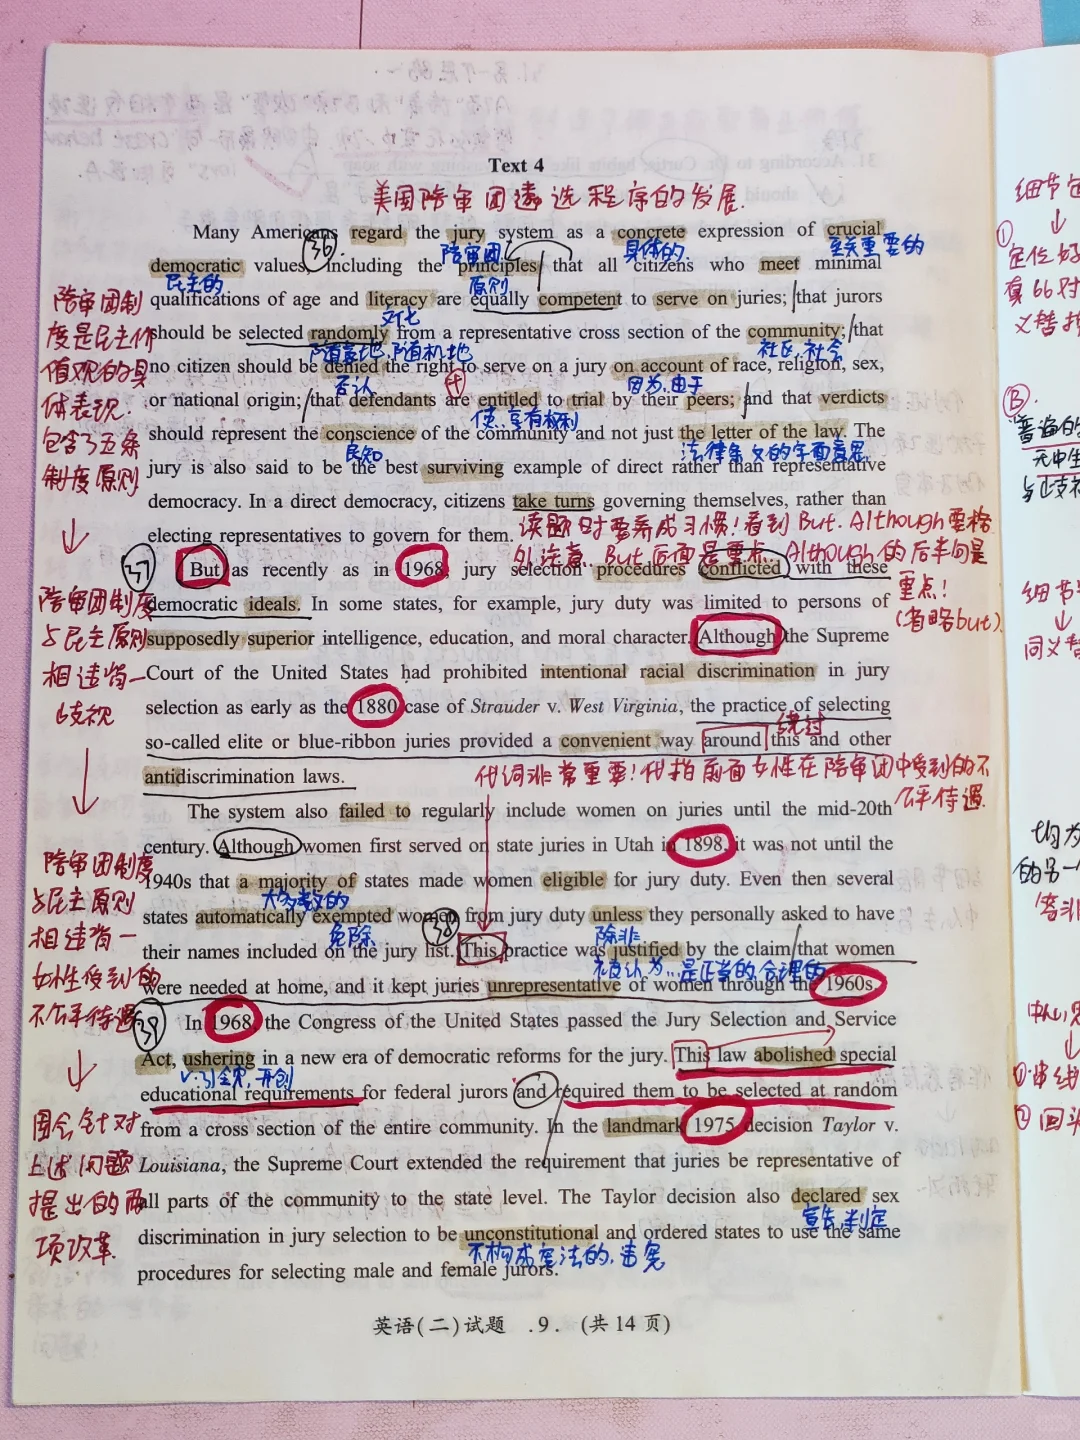 Text 4
美国陪审团遴选程序的发展.
Many Americans regard the jury system as a concrete expression of crucial
36 陪审团 具体的. 至关重要的
democratic values, including the principles that all citizens who meet minimal
民主的 原则
qualifications of age and literacy are equally competent to serve on juries; that jurors
文化
should be selected randomly from a representative cross section of the community; that
随意地,随机地 社区,社会
no citizen should be denied the right to serve on a jury on account of race, religion, sex,
否认 因为,由于
or national origin; that defendants are entitled to trial by their peers; and that verdicts
使..享有权利
should represent the conscience of the community and not just the letter of the law. The
民知 法律条文的字面意思
jury is also said to be the best surviving example of direct rather than representative
democracy. In a direct democracy, citizens take turns governing themselves, rather than
electing representatives to govern for them.
陪审团制
度是民主价
值观的具
体表现.
包含了五条
制度原则
读题时要养成习惯!看到But. Although要格
外注意. But后面是重点. Although的后半句是
重点!
(省略but).
37
But as recently as in 1968, jury selection procedures conflicted with these
democratic ideals. In some states, for example, jury duty was limited to persons of
supposedly superior intelligence, education, and moral character. Although the Supreme
Court of the United States had prohibited intentional racial discrimination in jury
selection as early as the 1880 case of Strauder v. West Virginia, the practice of selecting
绕过
so-called elite or blue-ribbon juries provided a convenient way around this and other
antidiscrimination laws.
陪审团制度
与民主原则
相违背一
歧视
代词非常重要!代指前面女性在陪审团中受到的不
公平待遇.
The system also failed to regularly include women on juries until the mid-20th
century. Although women first served on state juries in Utah in 1898, it was not until the
1940s that a majority of states made women eligible for jury duty. Even then several
大多数的
states automatically exempted women from jury duty unless they personally asked to have
免除 38 除非
their names included on the jury list. This practice was justified by the claim that women
被认为...是正常的,合理的
were needed at home, and it kept juries unrepresentative of women through the 1960s.
陪审团制度
与民主原则
相违背一
女性受到的
不公平待遇
39
In 1968, the Congress of the United States passed the Jury Selection and Service
Act, ushering in a new era of democratic reforms for the jury. This law abolished special
v.引领,开创
educational requirements for federal jurors and required them to be selected at random
from a cross section of the entire community. In the landmark 1975 decision Taylor v.
Louisiana, the Supreme Court extended the requirement that juries be representative of
all parts of the community to the state level. The Taylor decision also declared sex
宣告,判定
discrimination in jury selection to be unconstitutional and ordered states to use the same
不构成宪法的,违宪
procedures for selecting male and female jurors.
国会针对
上述问题
提出的两
项改革.
英语(二)试题 .9. (共14页)
①
定位好
义替
B.
普遍的
无中生
与歧视
细节
同义替
均为
的另一
答非
①审线
② 回头